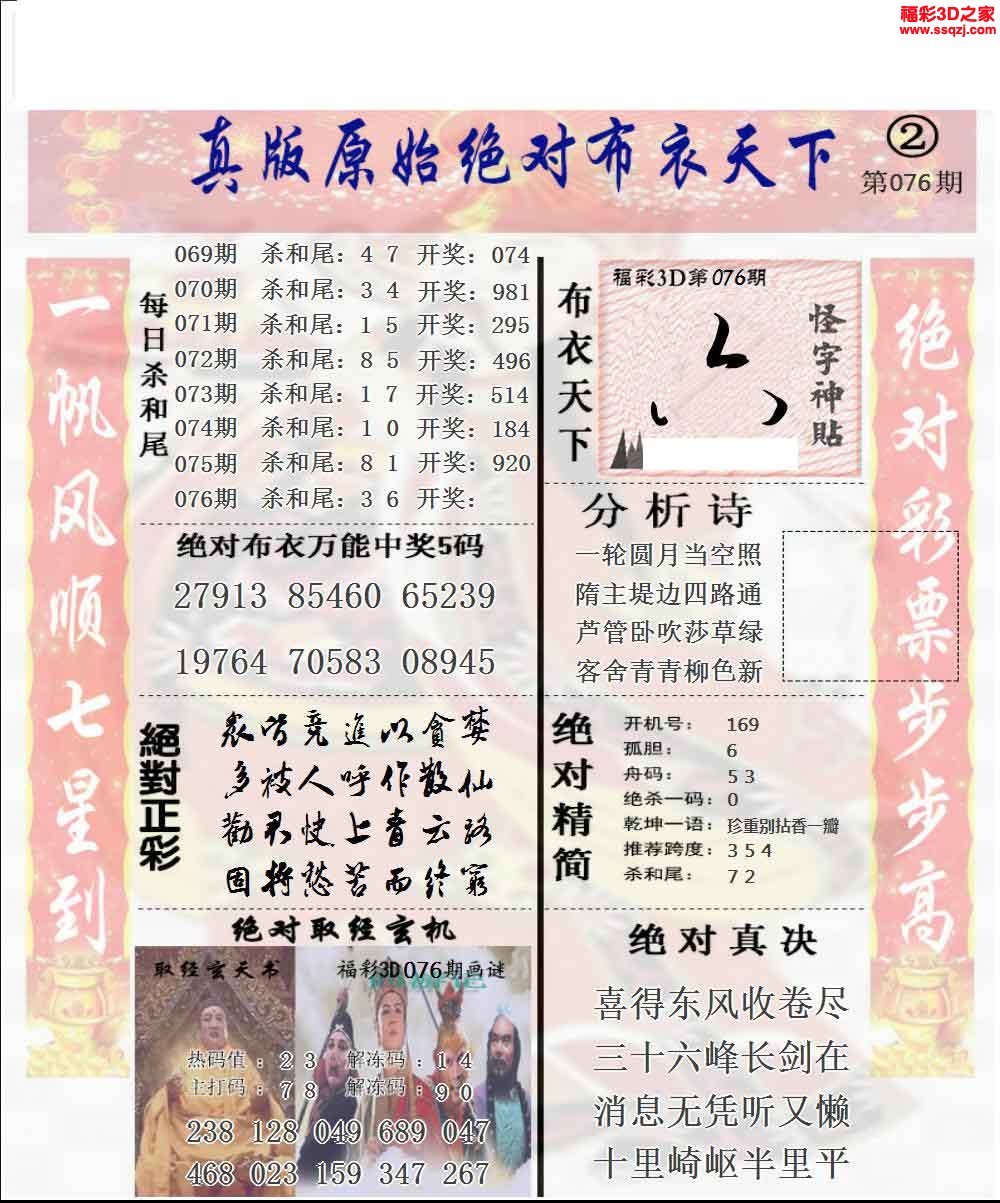 福彩3D之家
www.ssqzj.com
真版原始绝对布衣天下
②
第076期
一帆风顺七星到
每日杀和尾
069期 杀和尾：4 7 开奖：074
070期 杀和尾：3 4 开奖：981
071期 杀和尾：1 5 开奖：295
072期 杀和尾：8 5 开奖：496
073期 杀和尾：1 7 开奖：514
074期 杀和尾：1 0 开奖：184
075期 杀和尾：8 1 开奖：920
076期 杀和尾：3 6 开奖：
绝对布衣万能中奖5码
27913 85460 65239
19764 70583 08945
絕對正彩
衆皆競進以貪婪
多被人呼作散仙
勸君快上青云路
固将愁苦而终窮
绝对取经玄机
取经玄天书
福彩3D076期画谜
热码值：2 3 解冻码：1 4
主打码：7 8 解冻码：9 0
238 128 049 689 047
468 023 159 347 267
布衣天下
福彩3D第076期
怪字神貼
分析诗
一轮圆月当空照
隋主堤边四路通
芦管卧吹莎草绿
客舍青青柳色新
绝对精简
开机号： 169
孤胆： 6
舟码： 5 3
绝杀一码：0
乾坤一语：珍重别拈香一瓣
推荐跨度：3 5 4
杀和尾： 7 2
绝对真决
喜得东风收卷尽
三十六峰长剑在
消息无凭听又懒
十里崎岖半里平
绝对彩票步步高